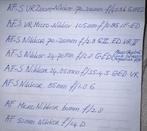 AF-S VR Zoom-Nikkor 70-300mm f/4.5-5.6 G IF-ED
AF-S VR Micro-Nikkor 105mm f/2.8G IF-ED
AF-S Nikkor 70-200mm f/2.8 G ED VR II
AF-S Nikkor 24-70mm f/2.8 G ED
AF-S Nikkor 24-85mm f/3.5-4.5 G ED VR
AF-S Nikkor 85mm f/1.8 G
AF Micro Nikkor 60mm f/2.8
AF 50mm Nikkor f/1.4 D